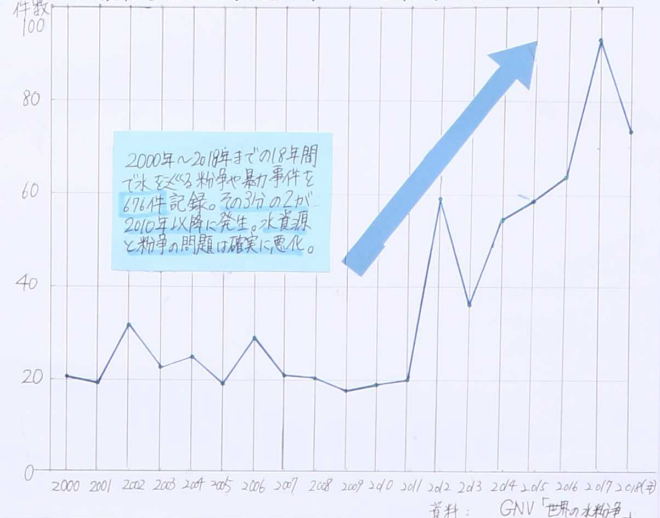 件数
100
80
60
40
20
0
2000年～2018年までの18年間
で水を巡る紛争や暴力事件を
676件記録。その3分の2が
2010年以降に発生。水資源
と紛争の問題は確実に悪化。
2000 2001 2002 2003 2004 2005 2006 2007 2008 2009 2010 2011 2012 2013 2014 2015 2016 2017 2018(年)
資料: GNV「世界の水紛争」